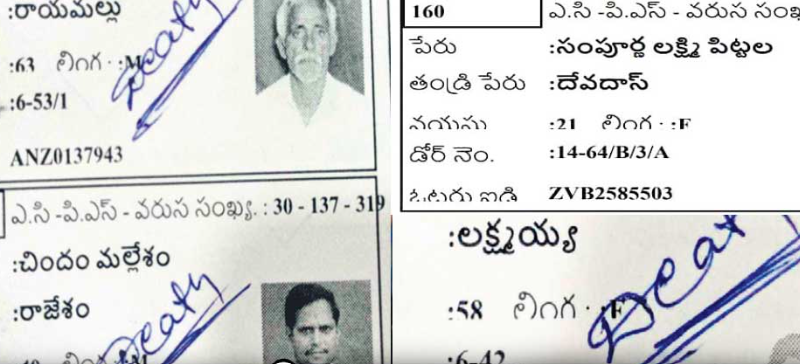 :రాయమల్లు
:63 లింగ :M
Death
:6-53/1
ANZ0137943
ఎ.సి -పి.ఎస్ - వరుస సంఖ్య. : 30 - 137 - 319
:చిందం మల్లేశం
:రాజేశం
Death
160
ఎ.సి -పి.ఎస్ - వరుస
పేరు :సంపూర్ణ లక్ష్మి పిట్టల
తండ్రి పేరు :దేవదాస్
వయసు :21 లింగ :F
డోర్ నెం. :14-64/B/3/A
ఓటరు ఐడి ZVB2585503
:లక్ష్మయ్య
Death
:58 లింగ :F
:6-42